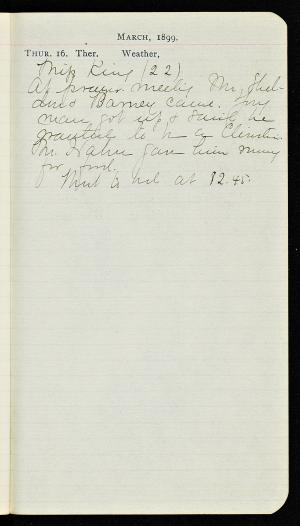 MARCH, 1899.
THUR. 16. Ther. Weather,
Miss King (22)
At prayer meeting Mr. Shel-
don's Barney came. My
man got up & said he
grateful to be a Christian
Mr. Hahn gave him money
for food.
Went to bed at 12.45.